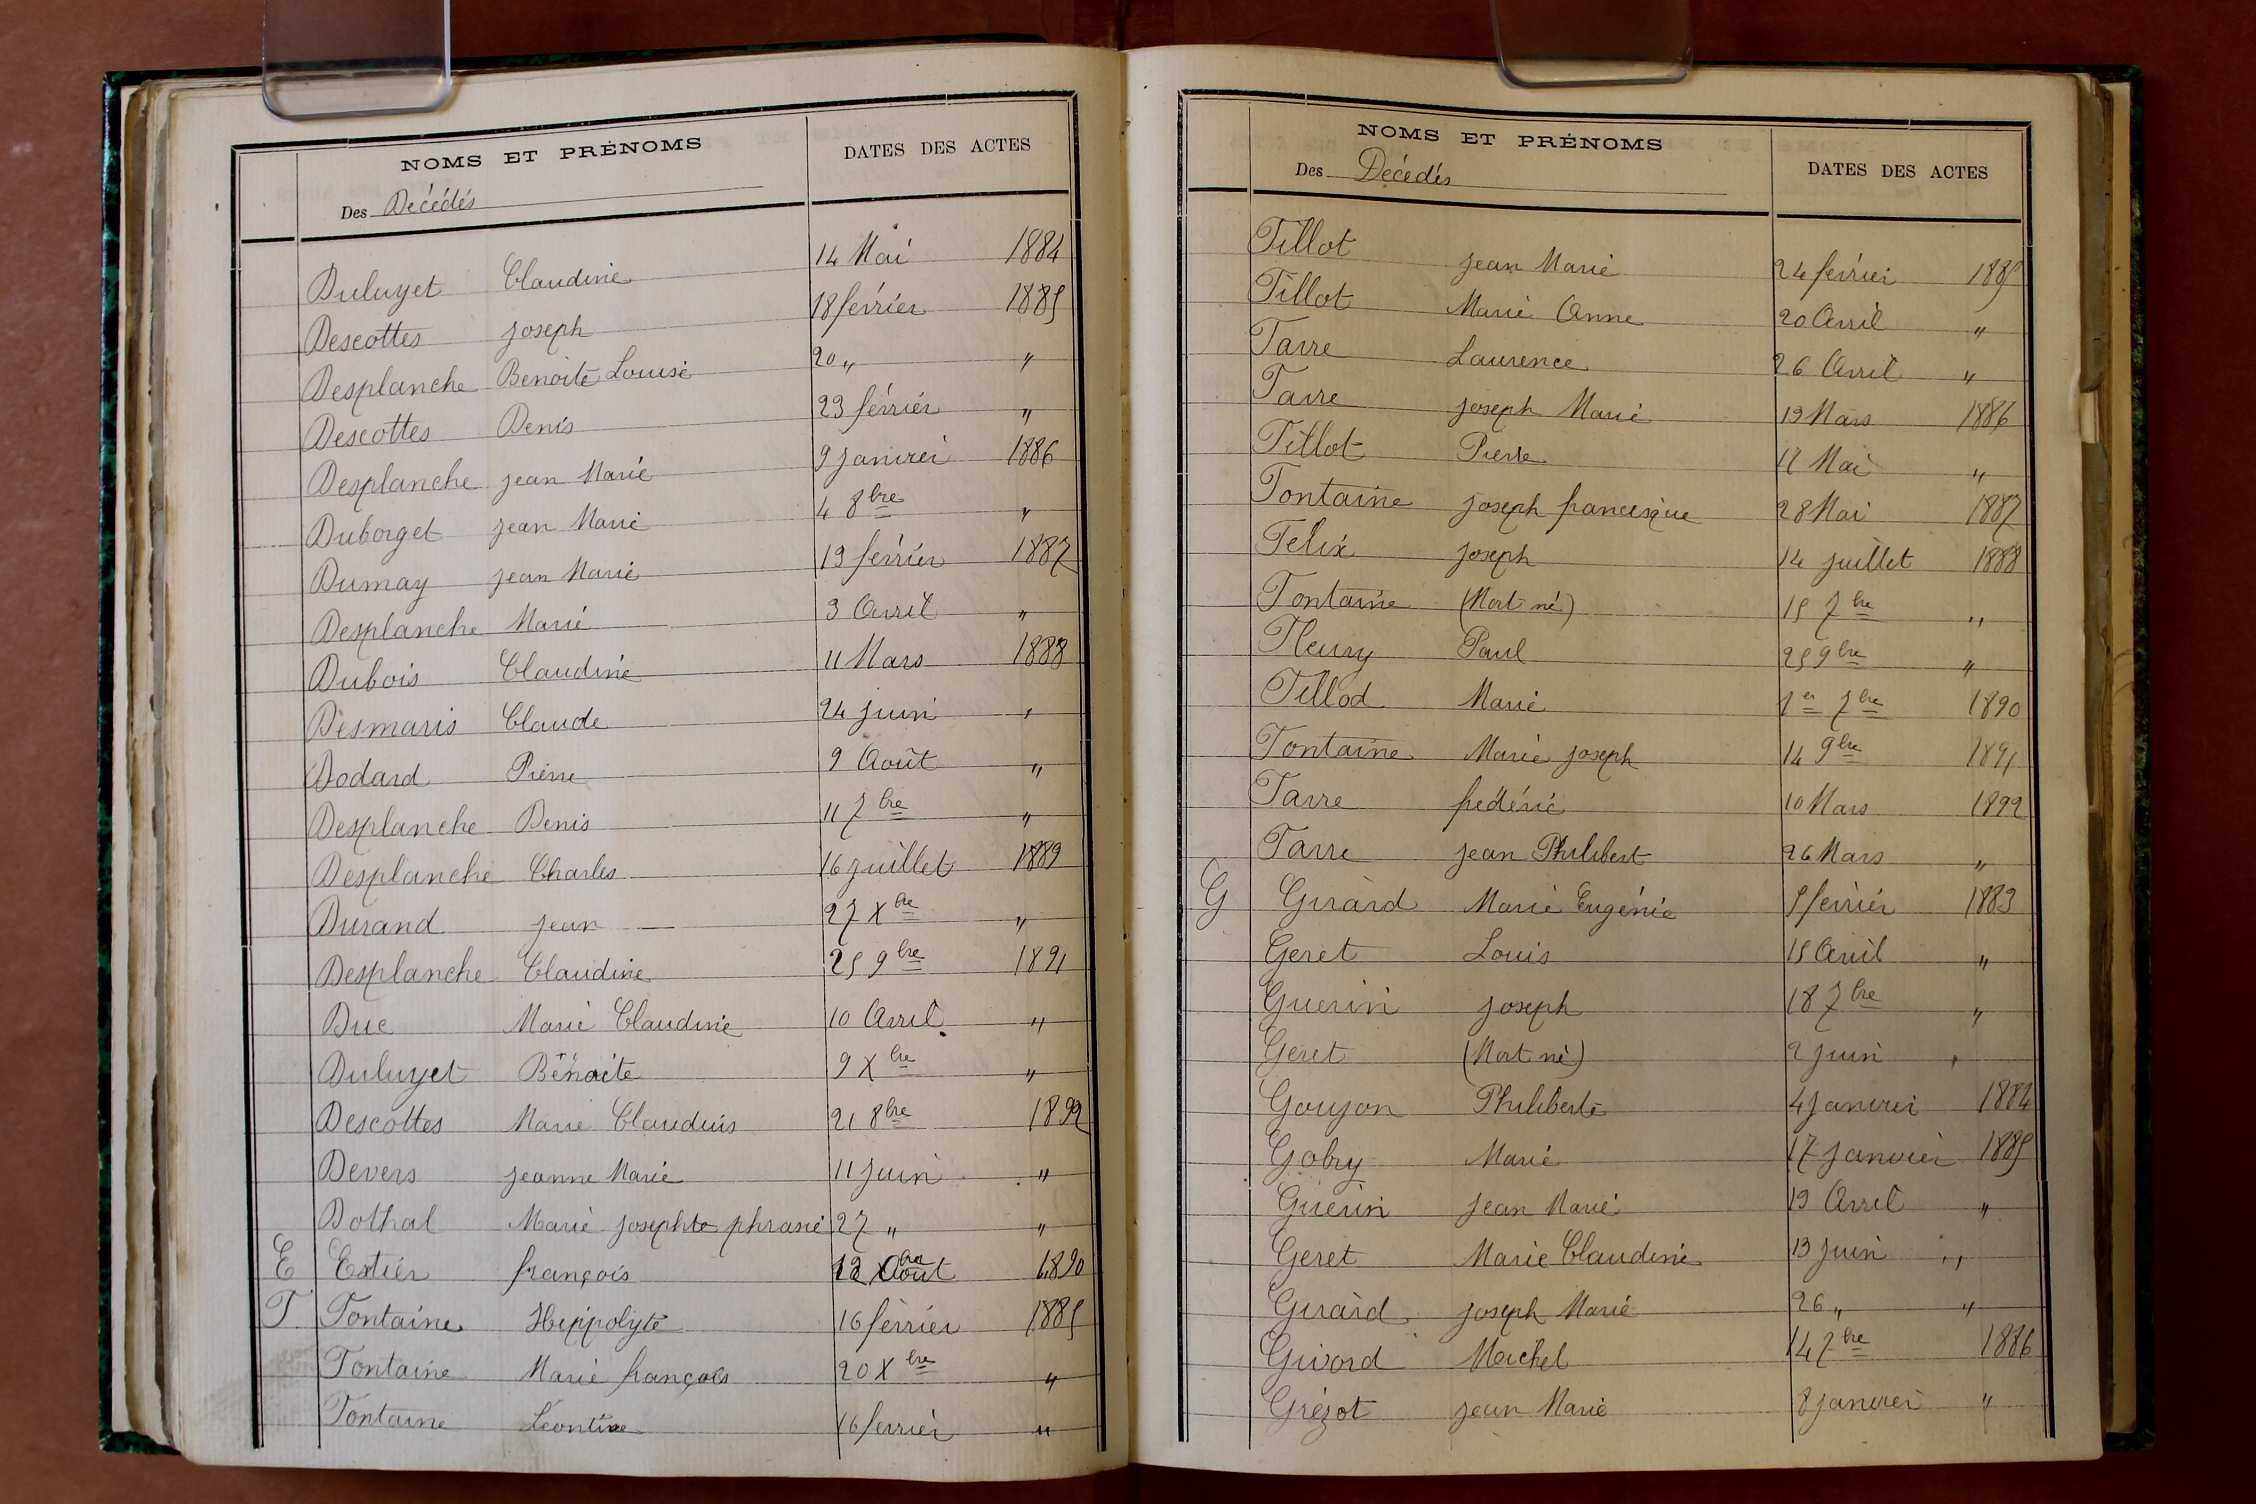 NOMS ET PRÉNOMS DATES DES ACTES
Des Décédés
Duluyet Claudine 14 Mai 1884
Descottes Joseph 18 février 1885
Desplanche Benoite Louise 20 " "
Descottes Denis 23 février "
Desplanche Jean Marie 9 Janvier 1886
Duborget Jean Marie 4 8bre "
Dumay Jean Marie 19 février 1887
Desplanche Marie 3 Avril "
Dubois Claudine 11 Mars 1888
Desmaris Claude 24 Juin "
Dodard Pierre 9 Août "
Desplanche Denis 11 7bre "
Desplanche Charles 16 Juillet 1889
Durand Jean 27 Xbre "
Desplanche Claudine 25 9bre 1891
Duc Marie Claudine 10 Avril "
Duluyet Bénoite 9 Xbre "
Descottes Marie Claudius 21 8bre 1892
Devers Jeanne Marie 11 Juin "
Dothal Marie Josephte phrasie 27 " "
E Extier françois 1890
F Fontaine Hippolyte 16 février 1885
Fontaine Marie françois 20 Xbre "
Fontaine Léontine 16 fevrier "
NOMS ET PRÉNOMS DATES DES ACTES
Des Décédés
Fillot Jean Marie 24 février 1885
Fillot Marie Anne 20 Avril "
Favre Laurence 26 Avril "
Favre Joseph Marie 19 Mars 1886
Fillot Pierre Mai "
Fontaine Joseph francisque 28 Mai 1887
Felix Joseph 14 Juillet 1888
Fontaine (Mort né) 15 7bre "
Fleury Paul 25 9bre "
Fillod Marie 1er 7bre 1890
Fontaine Marie Joseph 14 9bre 1891
Favre frédéric 10 Mars 1892
Favre Jean Philibert 26 Mars "
G Girard Marie Eugénie 5 février 1883
Geret Louis 15 Avril "
Guerin Joseph 18 7bre "
Geret (Mort né) 2 Juin "
Goujon Philiberte 4 Janvier 1884
Gobry Marie 17 Janvier 1885
Guérin Jean Marie 19 Avril "
Geret Marie Claudine 13 Juin "
Girard Joseph Marie 26 " "
Givord Michel 14 7bre 1886
Grézot Jean Marie 8 Janvier "